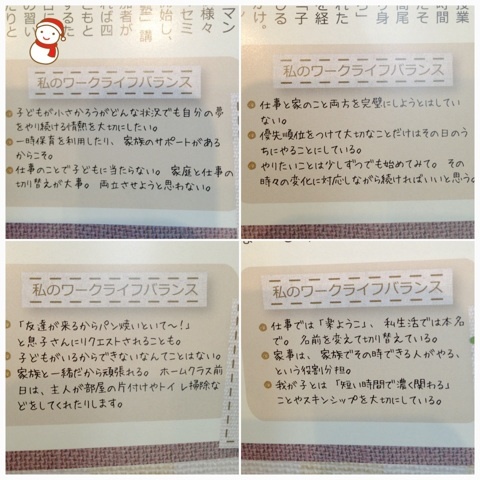 マン
様々
セミ
始し、
塾」講
加者が
れば四
ともと
の習い
たりと
私のワークライフバランス
子どもが小さかろうがどんな状況でも自分の夢
をやり続ける情熱を大切にしたい。
一時保育を利用したり、家族のサポートがある
からこそ。
仕事のことで子どもに当たらない。家庭と仕事の
切り替えが大事。両立させようと思わない。
授業
時間
たそ
間尾
り身
を経
れた
「子
しる
かけ。
私のワークライフバランス
仕事と家のこと両方を完璧にしようとはしてい
ない。
優先順位をつけて大切なことだけはその日のう
ちにやることにしている。
やりたいことは少しずつでも始めてみて。その
時々の変化に対応しながら続ければいいと思う。
私のワークライフバランス
「友達が来るからパン焼いといて〜!」
と息子さんにリクエストされることも。
子どもがいるからできないなんてことはない。
家族と一緒だから頑張れる。ホームクラス前
日は、主人が部屋の片付けやトイレ掃除な
どをしてくれたりします。
私のワークライフバランス
仕事では「幸ようこ」、私生活では本名
で。名前を変えて切り替えている。
家事は、家族でその時できる人がやる、
という役割分担。
我が子とは「短い時間で濃く関わる」
ことやスキンシップを大切にしている。